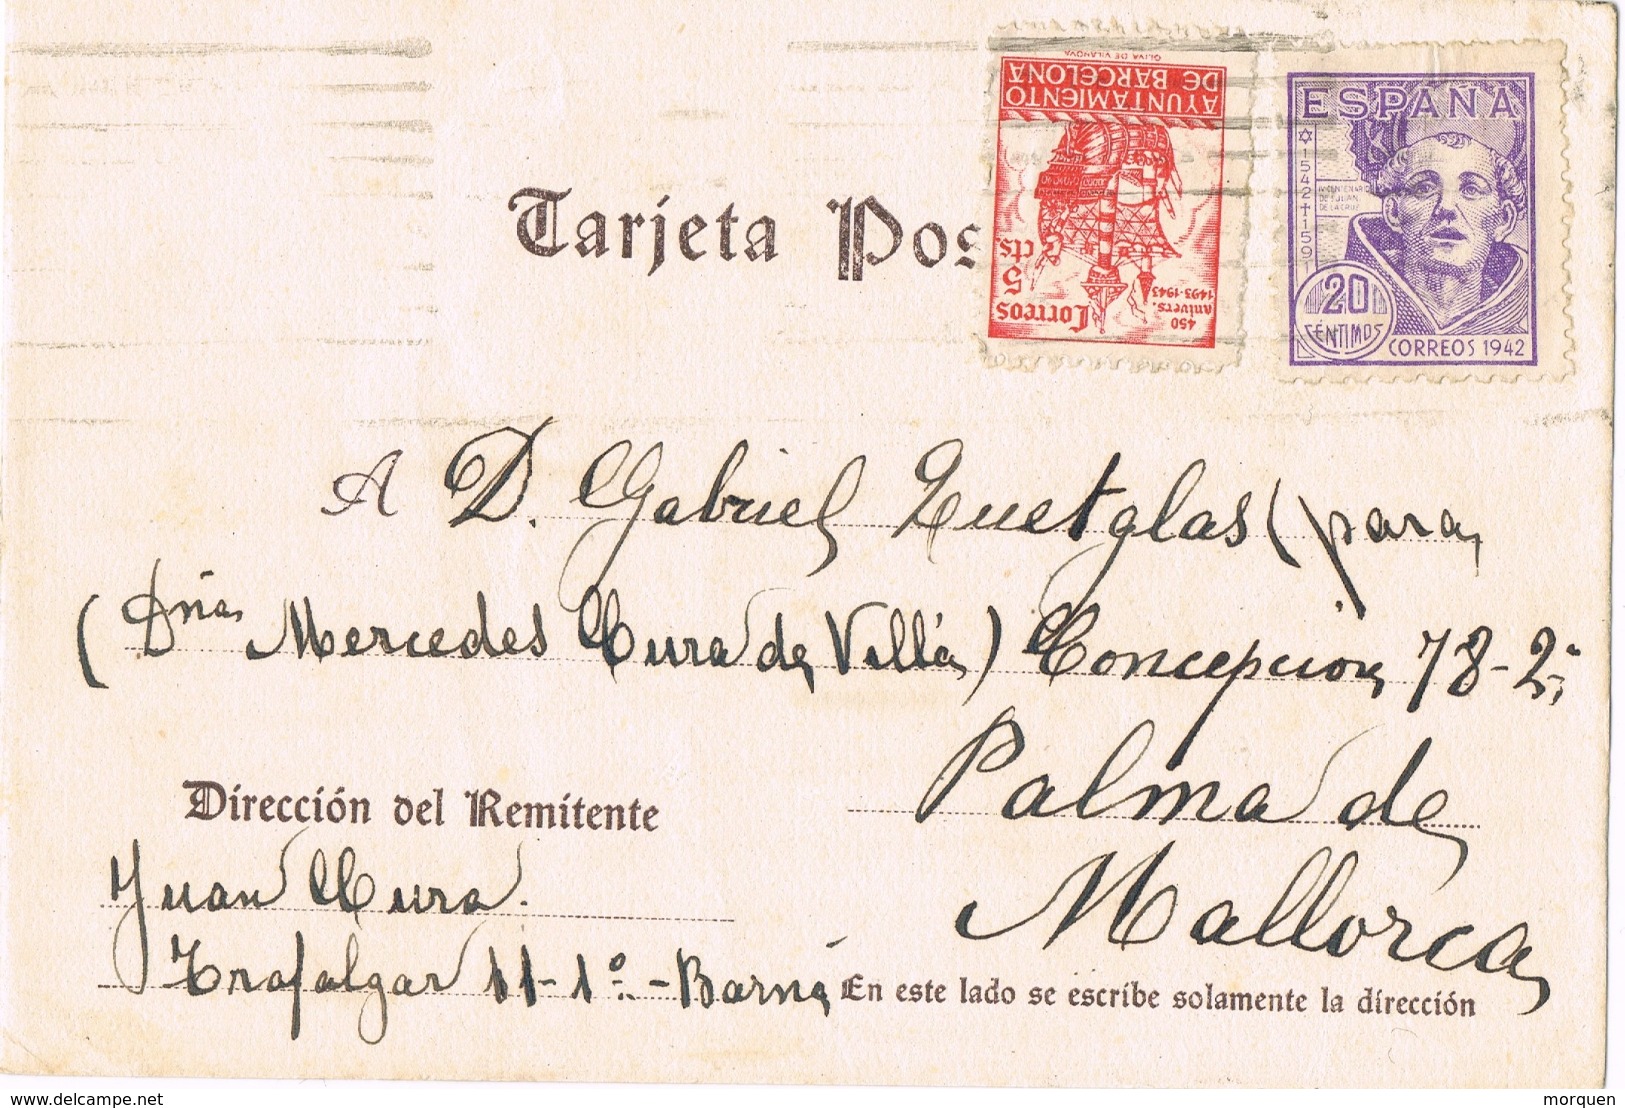 Tarjeta Pos
OLIVA DE VILANOVA
AYUNTAMIENTO
DE BARCELONA
5
cts
Correos
450
anivers.
1493-1943
ESPAÑA
1542†1591
IV CENTENARIO
DE S. JUAN
DE LA CRUZ
20
CÉNTIMOS
CORREOS 1942
A D. Gabriel Quetglas (para
(Dña Mercedes Cura de Villá) Concepción 78-2º
Palma de
Mallorca
Dirección del Remitente
Juan Cura.
Trafalgar 11-1º.-Barna
En este lado se escribe solamente la dirección
delcampe.net
morquen